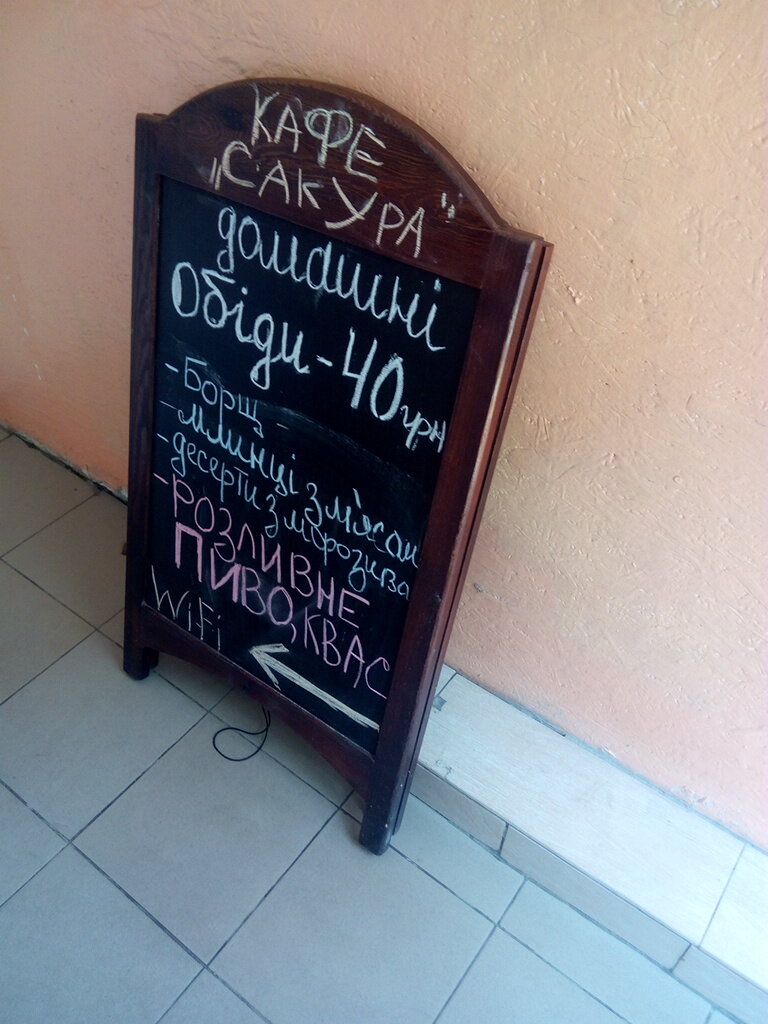 КАФЕ
„САКУРА"
домашні
Обіди - 40 грн
- Борщ
- млинці з м'ясом
- десерти з морозива
- РОЗЛИВНЕ
ПИВО, КВАС
WiFi